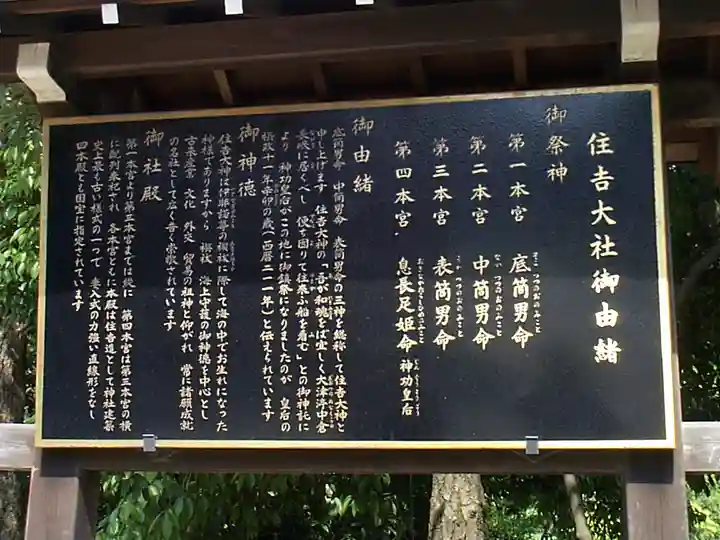 住吉大社御由緒
御祭神
第一本宮 底筒男命
そこつつのおのみこと
第二本宮 中筒男命
なかつつのおのみこと
第三本宮 表筒男命
うわつつのおのみこと
第四本宮 息長足姫命 神功皇后
おきながたらしひめのみこと じんぐうこうごう
御由緒
底筒男命 中筒男命 表筒男命の三神を総称して住吉大神と
申し上げます 住吉大神の「吾が和魂をば宜しく大津渟中倉
長峡に居くべし 便ち因りて往来ふ船を看む」との御神託に
より 神功皇后がこの地に御鎮祭になりましたのが 皇后の
摂政十一年辛卯の歳(西暦二一一年)と伝えられています
御神徳
住吉大神は伊弉諾尊の禊祓に際して海の中でお生れになった
神様でありますから 禊祓 海上守護の御神徳を中心とし
古来産業 文化 外交 貿易の祖神と仰がれ 常に諸願成就
の名社として広く音く崇敬されています
御社殿
第一本宮より第三本宮までは縦に 第四本宮は第三本宮の横
に配列奉祀され 各本宮ともに本殿は住吉造として神社建築
史上最も古い様式の一つで 妻入式の力強い直線形をなし
四本殿とも国宝に指定されています